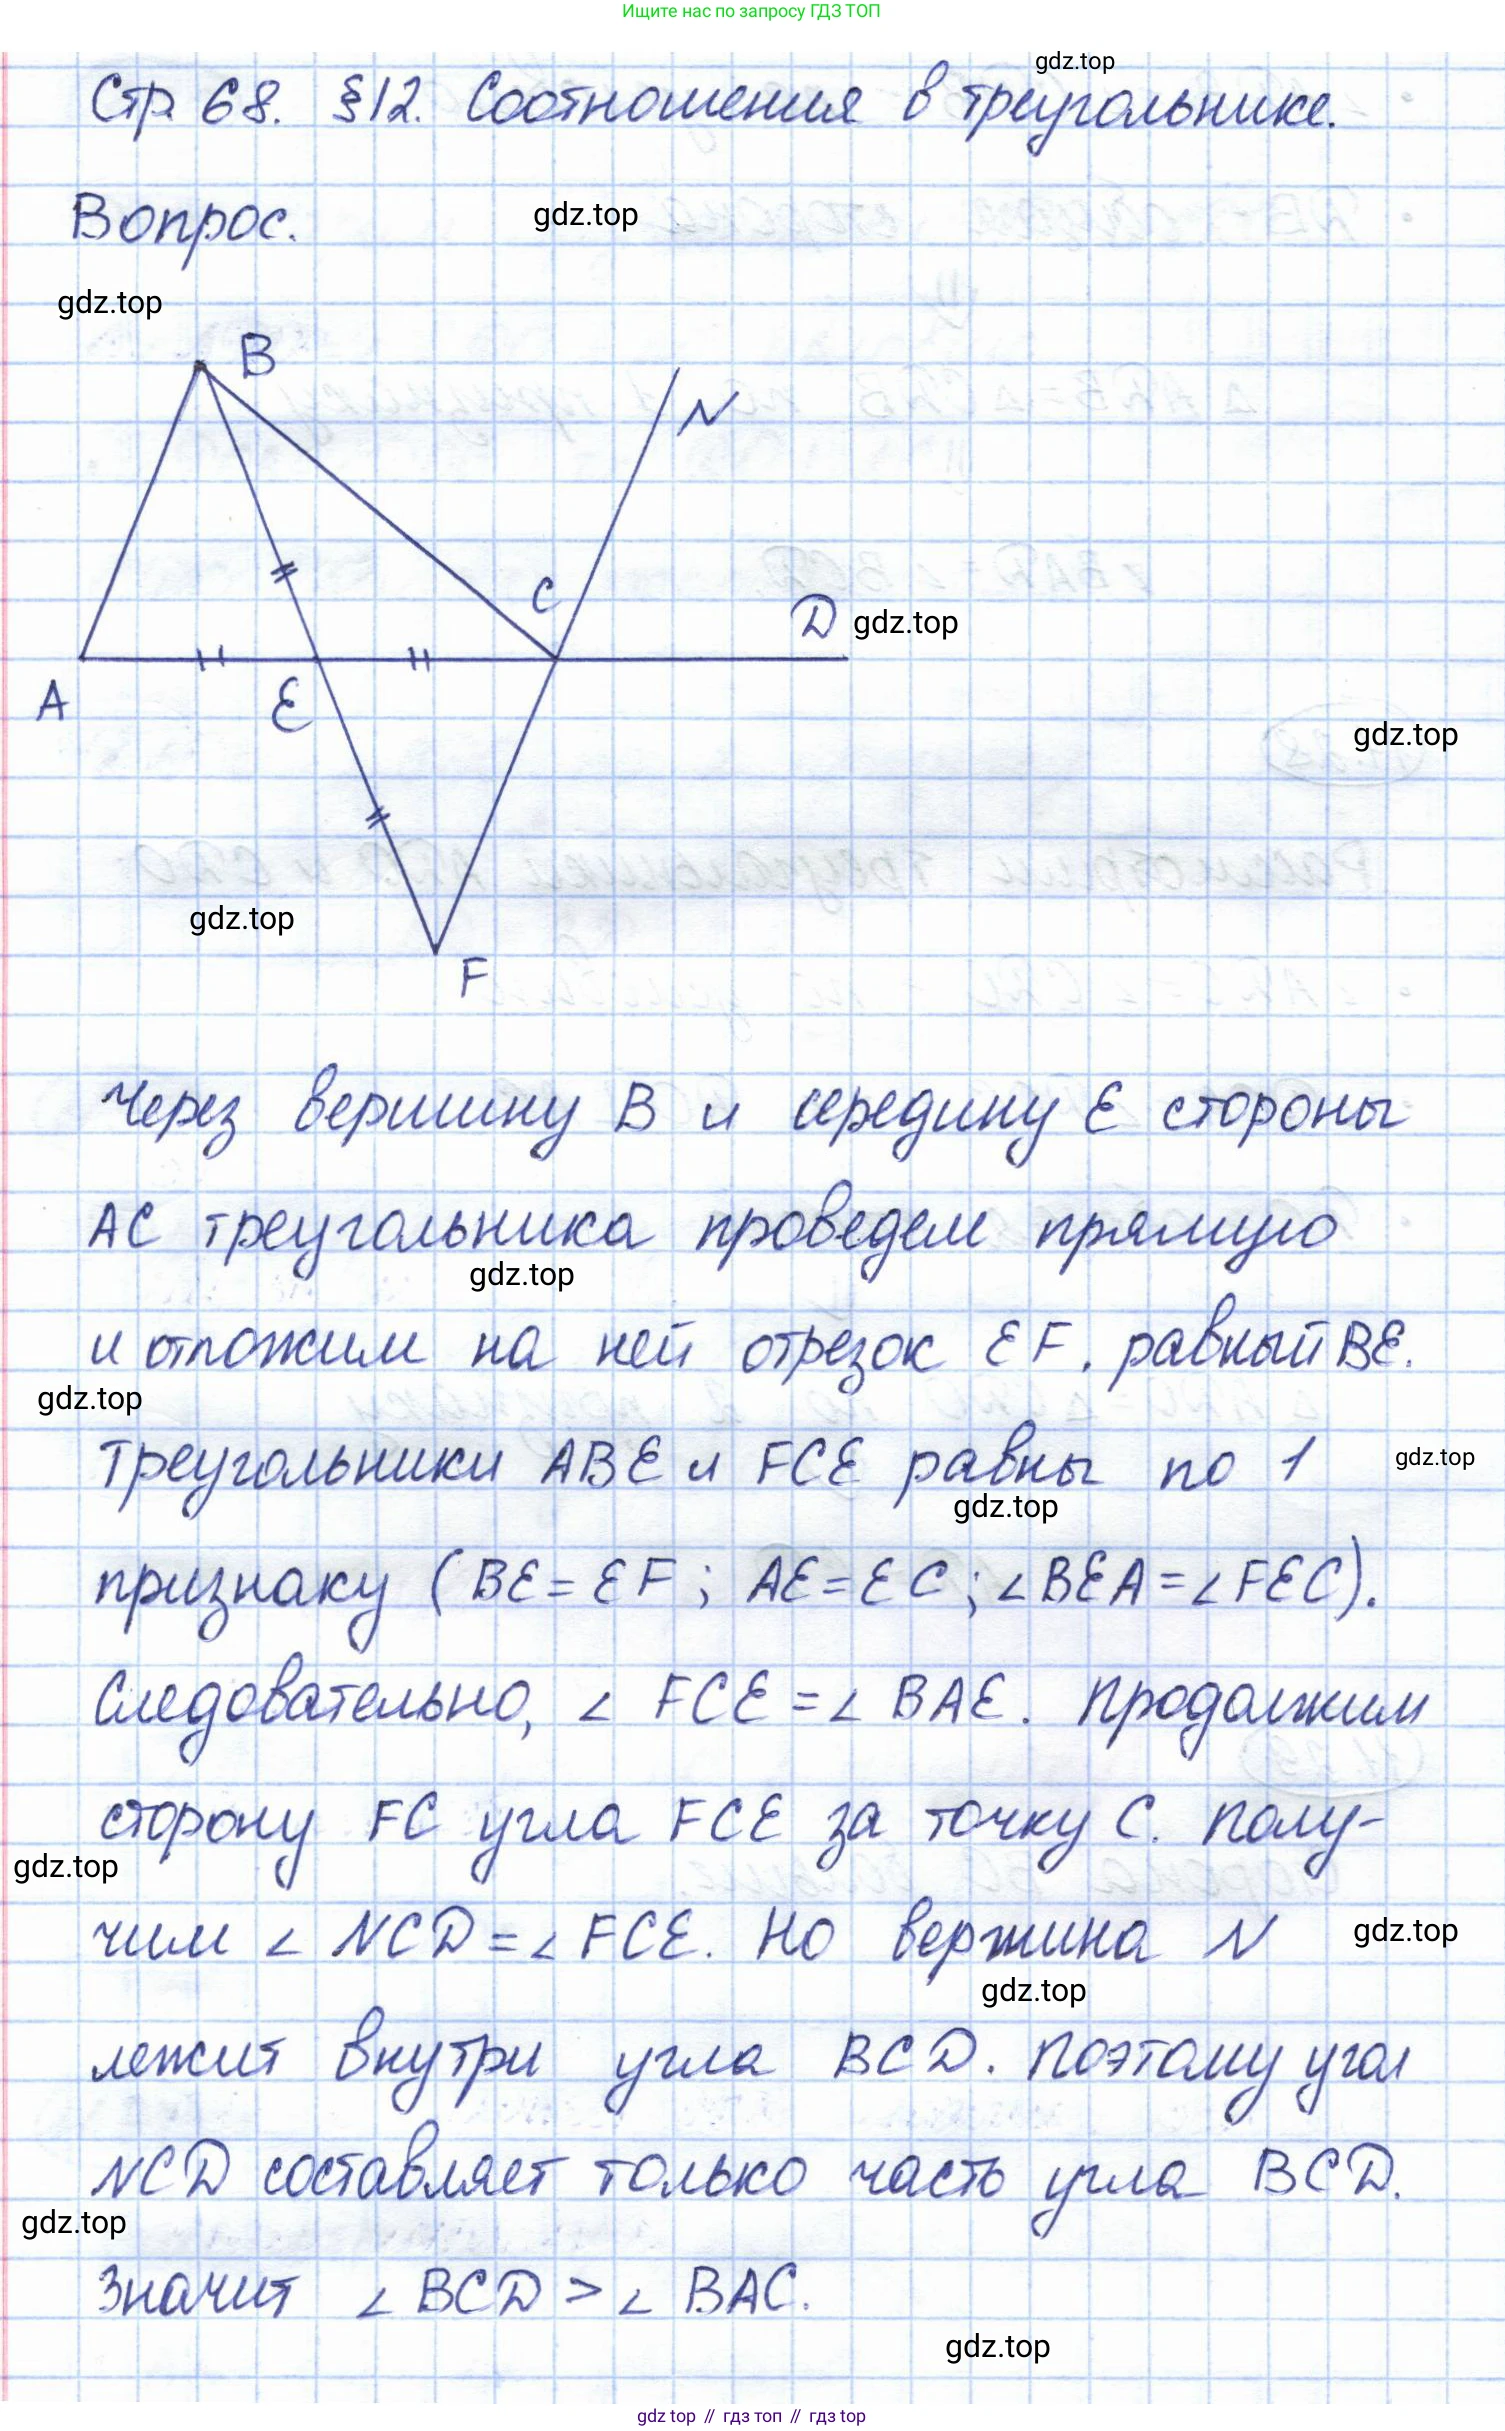 Ищите нас по запросу ГДЗ ТОП
gdz.top
Стр. 68. §12. Соотношения в треугольнике.
Вопрос.
gdz.top
gdz.top
B
N
C
D
gdz.top
A
E
gdz.top
gdz.top
F
Через вершину B и середину E стороны
AC треугольника проведем прямую
gdz.top
и отложим на ней отрезок EF, равный BE.
gdz.top
Треугольники ABE и FCE равны по 1
gdz.top
gdz.top
признаку (BE = EF; AE = EC; ∠BEA = ∠FEC).
Следовательно, ∠ FCE = ∠ BAE. Продолжим
сторону FC угла FCE за точку C. Полу-
gdz.top
чим ∠ NCD = ∠ FCE. Но вержина N
gdz.top
gdz.top
лежит внутри угла BCD. Поэтому угол
NCD составляет только часть угла BCD.
gdz.top
Значит ∠ BCD > ∠ BAC.
gdz.top
gdz top // гдз топ // гдз top